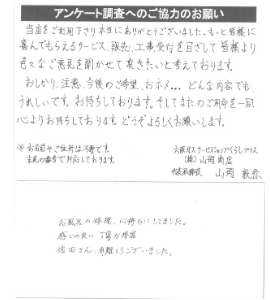 アンケート調査へのご協力のお願い
当店をご利用下さり本当にありがとうございました。もっと皆様に
喜んでもらえるサービス、販売、工事実行を目ざして皆様より
色々なご意見を聞かせて頂きたいと考えております。
おしかり、注意、今後のご希望、おホメ… どんな内容でも
うれしいです。お待ちしております。そしてまたのご用命を一同
心よりお待ちしております。どうぞよろしくお願いします。
※お名前やご住所は不要です。
大阪ガスサービスショップくらしプラス
(株)山岡商店
代表取締役 山岡
お風呂の修理、お世話になりました。
感じの良い
さん、有難うございました。